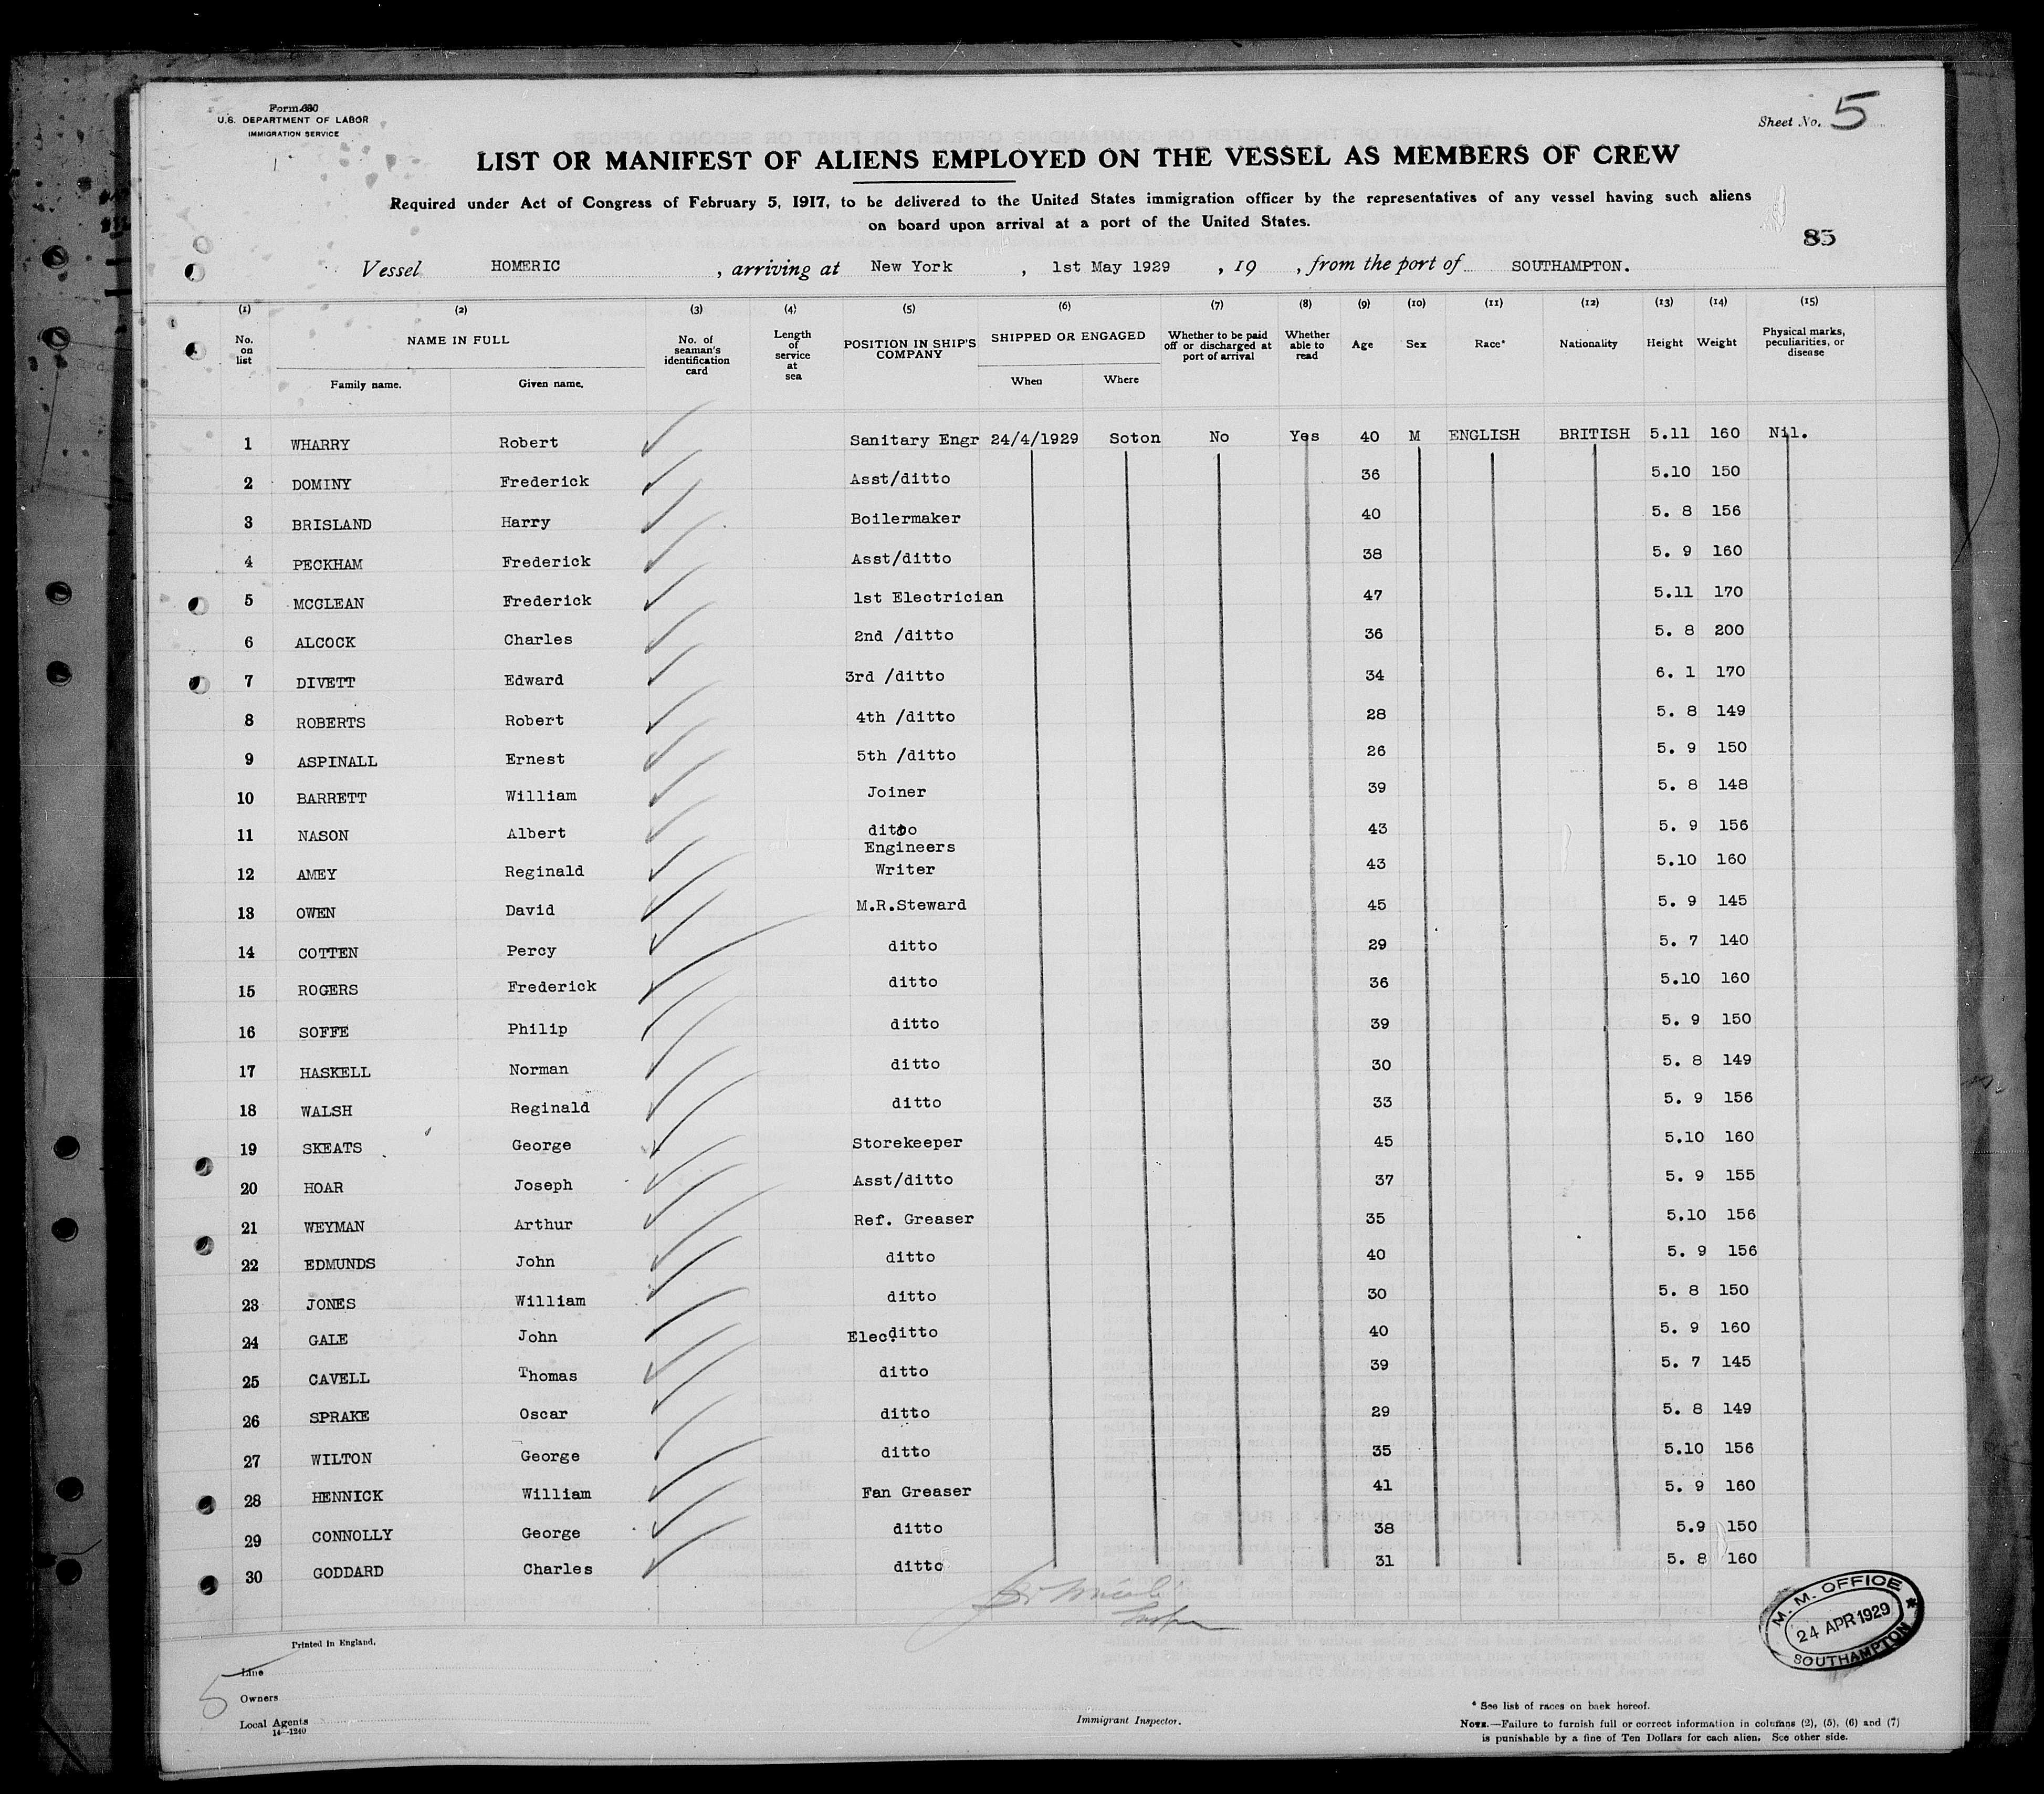 Form 680
U.S. DEPARTMENT OF LABOR
IMMIGRATION SERVICE
Sheet No. 5
LIST OR MANIFEST OF ALIENS EMPLOYED ON THE VESSEL AS MEMBERS OF CREW
Required under Act of Congress of February 5, 1917, to be delivered to the United States immigration officer by the representatives of any vessel having such aliens
on board upon arrival at a port of the United States.
85
Vessel HOMERIC , arriving at New York , 1st May 1929 , 19 , from the port of SOUTHAMPTON.
(1) (2) (3) (4) (5) (6) (7) (8) (9) (10) (11) (12) (13) (14) (15)
No. on list NAME IN FULL Family name. Given name. No. of seaman's identification card Length of service at sea POSITION IN SHIP'S COMPANY SHIPPED OR ENGAGED When Where Whether to be paid off or discharged at port of arrival Whether able to read Age Sex Race* Nationality Height Weight Physical marks, peculiarities, or disease
1 WHARRY Robert Sanitary Engr 24/4/1929 Soton No Yes 40 M ENGLISH BRITISH 5.11 160 Nil.
2 DOMINY Frederick Asst/ditto 36 5.10 150
3 BRISLAND Harry Boilermaker 40 5. 8 156
4 PECKHAM Frederick Asst/ditto 38 5. 9 160
5 MCCLEAN Frederick 1st Electrician 47 5.11 170
6 ALCOCK Charles 2nd /ditto 36 5. 8 200
7 DIVETT Edward 3rd /ditto 34 6. 1 170
8 ROBERTS Robert 4th /ditto 28 5. 8 149
9 ASPINALL Ernest 5th /ditto 26 5. 9 150
10 BARRETT William Joiner 39 5. 8 148
11 NASON Albert ditto 43 5. 9 156
12 AMEY Reginald Engineers Writer 43 5.10 160
13 OWEN David M.R.Steward 45 5. 9 145
14 COTTEN Percy ditto 29 5. 7 140
15 ROGERS Frederick ditto 36 5.10 160
16 SOFFE Philip ditto 39 5. 9 150
17 HASKELL Norman ditto 30 5. 8 149
18 WALSH Reginald ditto 33 5. 9 156
19 SKEATS George Storekeeper 45 5.10 160
20 HOAR Joseph Asst/ditto 37 5. 9 155
21 WEYMAN Arthur Ref. Greaser 35 5.10 156
22 EDMUNDS John ditto 40 5. 9 156
23 JONES William ditto 30 5. 8 150
24 GALE John Elec.ditto 40 5. 9 160
25 CAVELL Thomas ditto 39 5. 7 145
26 SPRAKE Oscar ditto 29 5. 8 149
27 WILTON George ditto 35 5.10 156
28 HENNICK William Fan Greaser 41 5. 9 160
29 CONNOLLY George ditto 38 5.9 150
30 GODDARD Charles ditto 31 5. 8 160
M. M. OFFICE
24 APR 1929
SOUTHAMPTON
Printed in England.
5
Line
Owners
Local Agents
14-1240
Immigrant Inspector.
* See list of races on back hereof.
NOTE.—Failure to furnish full or correct information in columns (2), (5), (6) and (7)
is punishable by a fine of Ten Dollars for each alien. See other side.